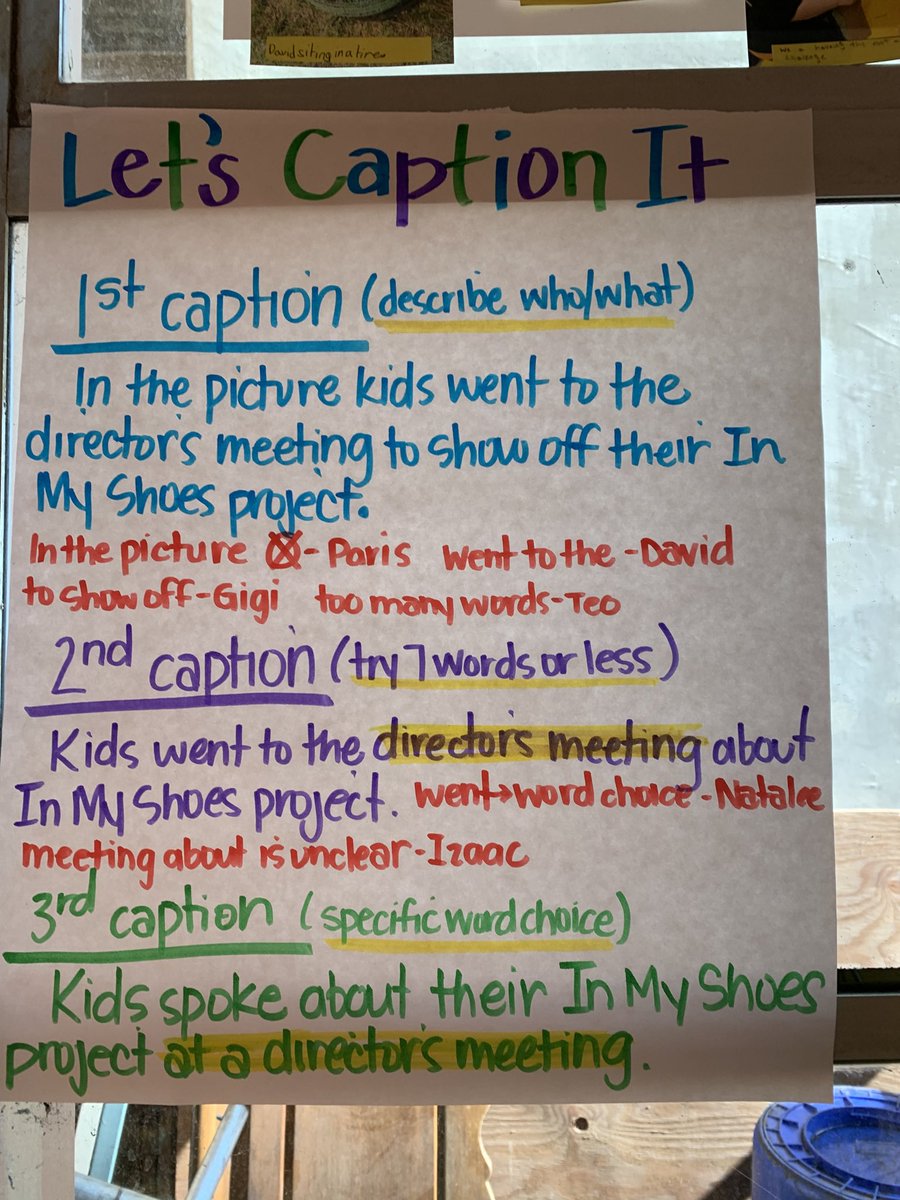 David siting in a tire.
challenge
Let's Caption It
1st caption (describe who/what)
In the picture kids went to the
director's meeting to show off their In
My Shoes project.
In the picture - Paris went to the - David
to show off - Gigi too many words - Teo
2nd caption (try 7 words or less)
Kids went to the director's meeting about
In My Shoes project. went→word choice - Natalee
meeting about is unclear - Izaac
3rd caption (specific word choice)
Kids spoke about their In My Shoes
project at a director's meeting.